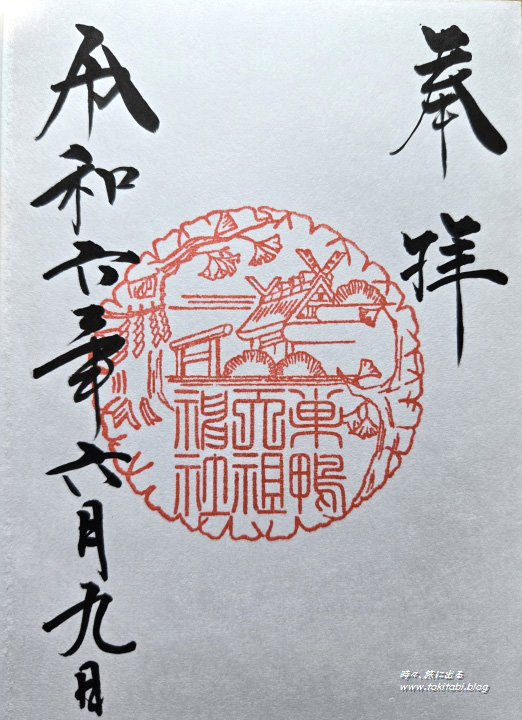 奉拝
巣鴨
天祖
神社
令和六年六月九日
時々、旅に出る
www.tokitabi.blog